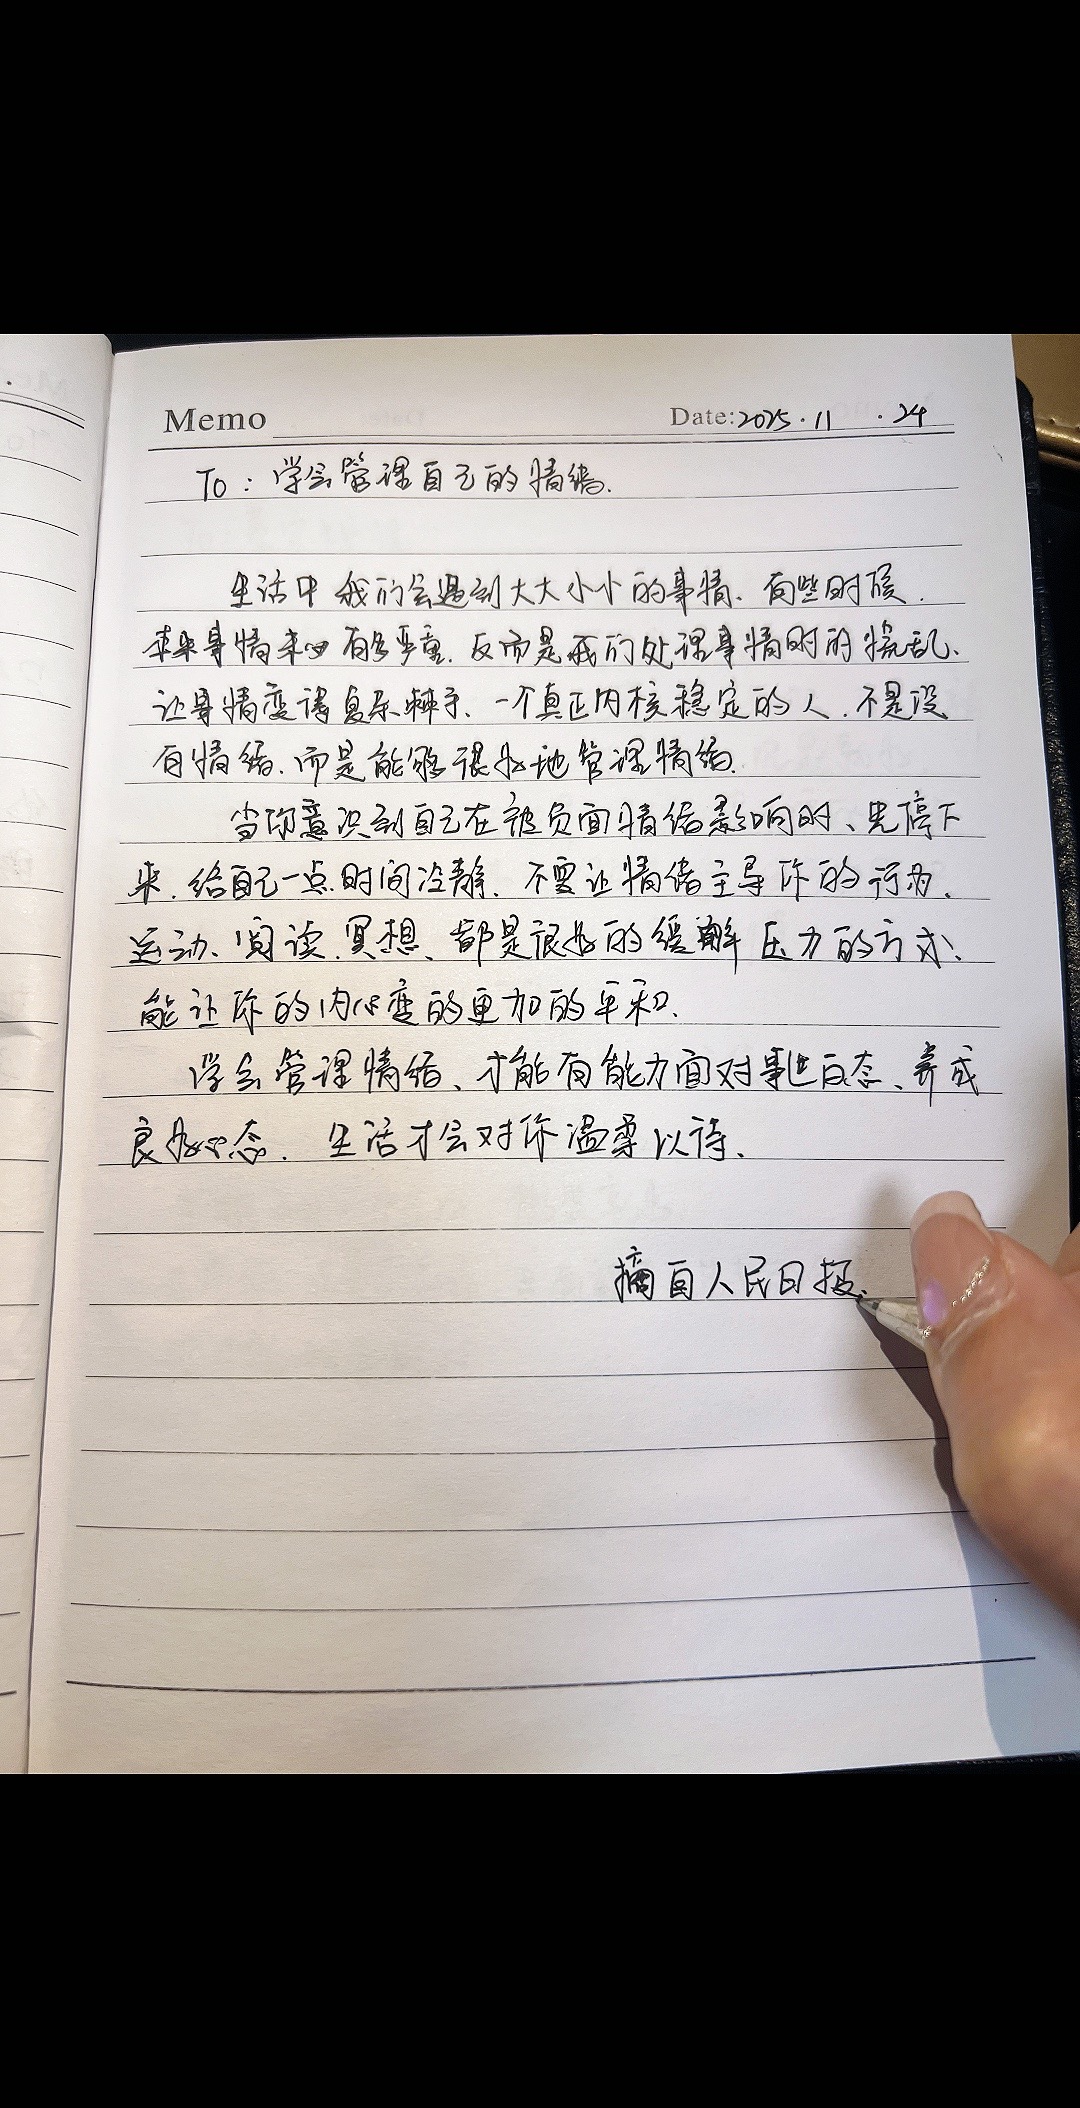 Memo
Date:2025.11.24
To:学会管理自己的情绪.
生活中我们会遇到大大小小的事情、有些时候.
本来事情未必有多严重.反而是我们处理事情时的慌乱、
让事情变得复杂棘手、一个真正内核稳定的人.不是没
有情绪、而是能够很好地管理情绪.
当你意识到自己在被负面情绪影响时、先停下
来.给自己一点时间冷静、不要让情绪主导你的行为.
运动、阅读.冥想、都是很好的缓解压力的方式、
能让你的内心变的更加的平和.
学会管理情绪、才能有能力面对事世百态、养成
良好心态.生活才会对你温柔以待、
摘自人民日报.